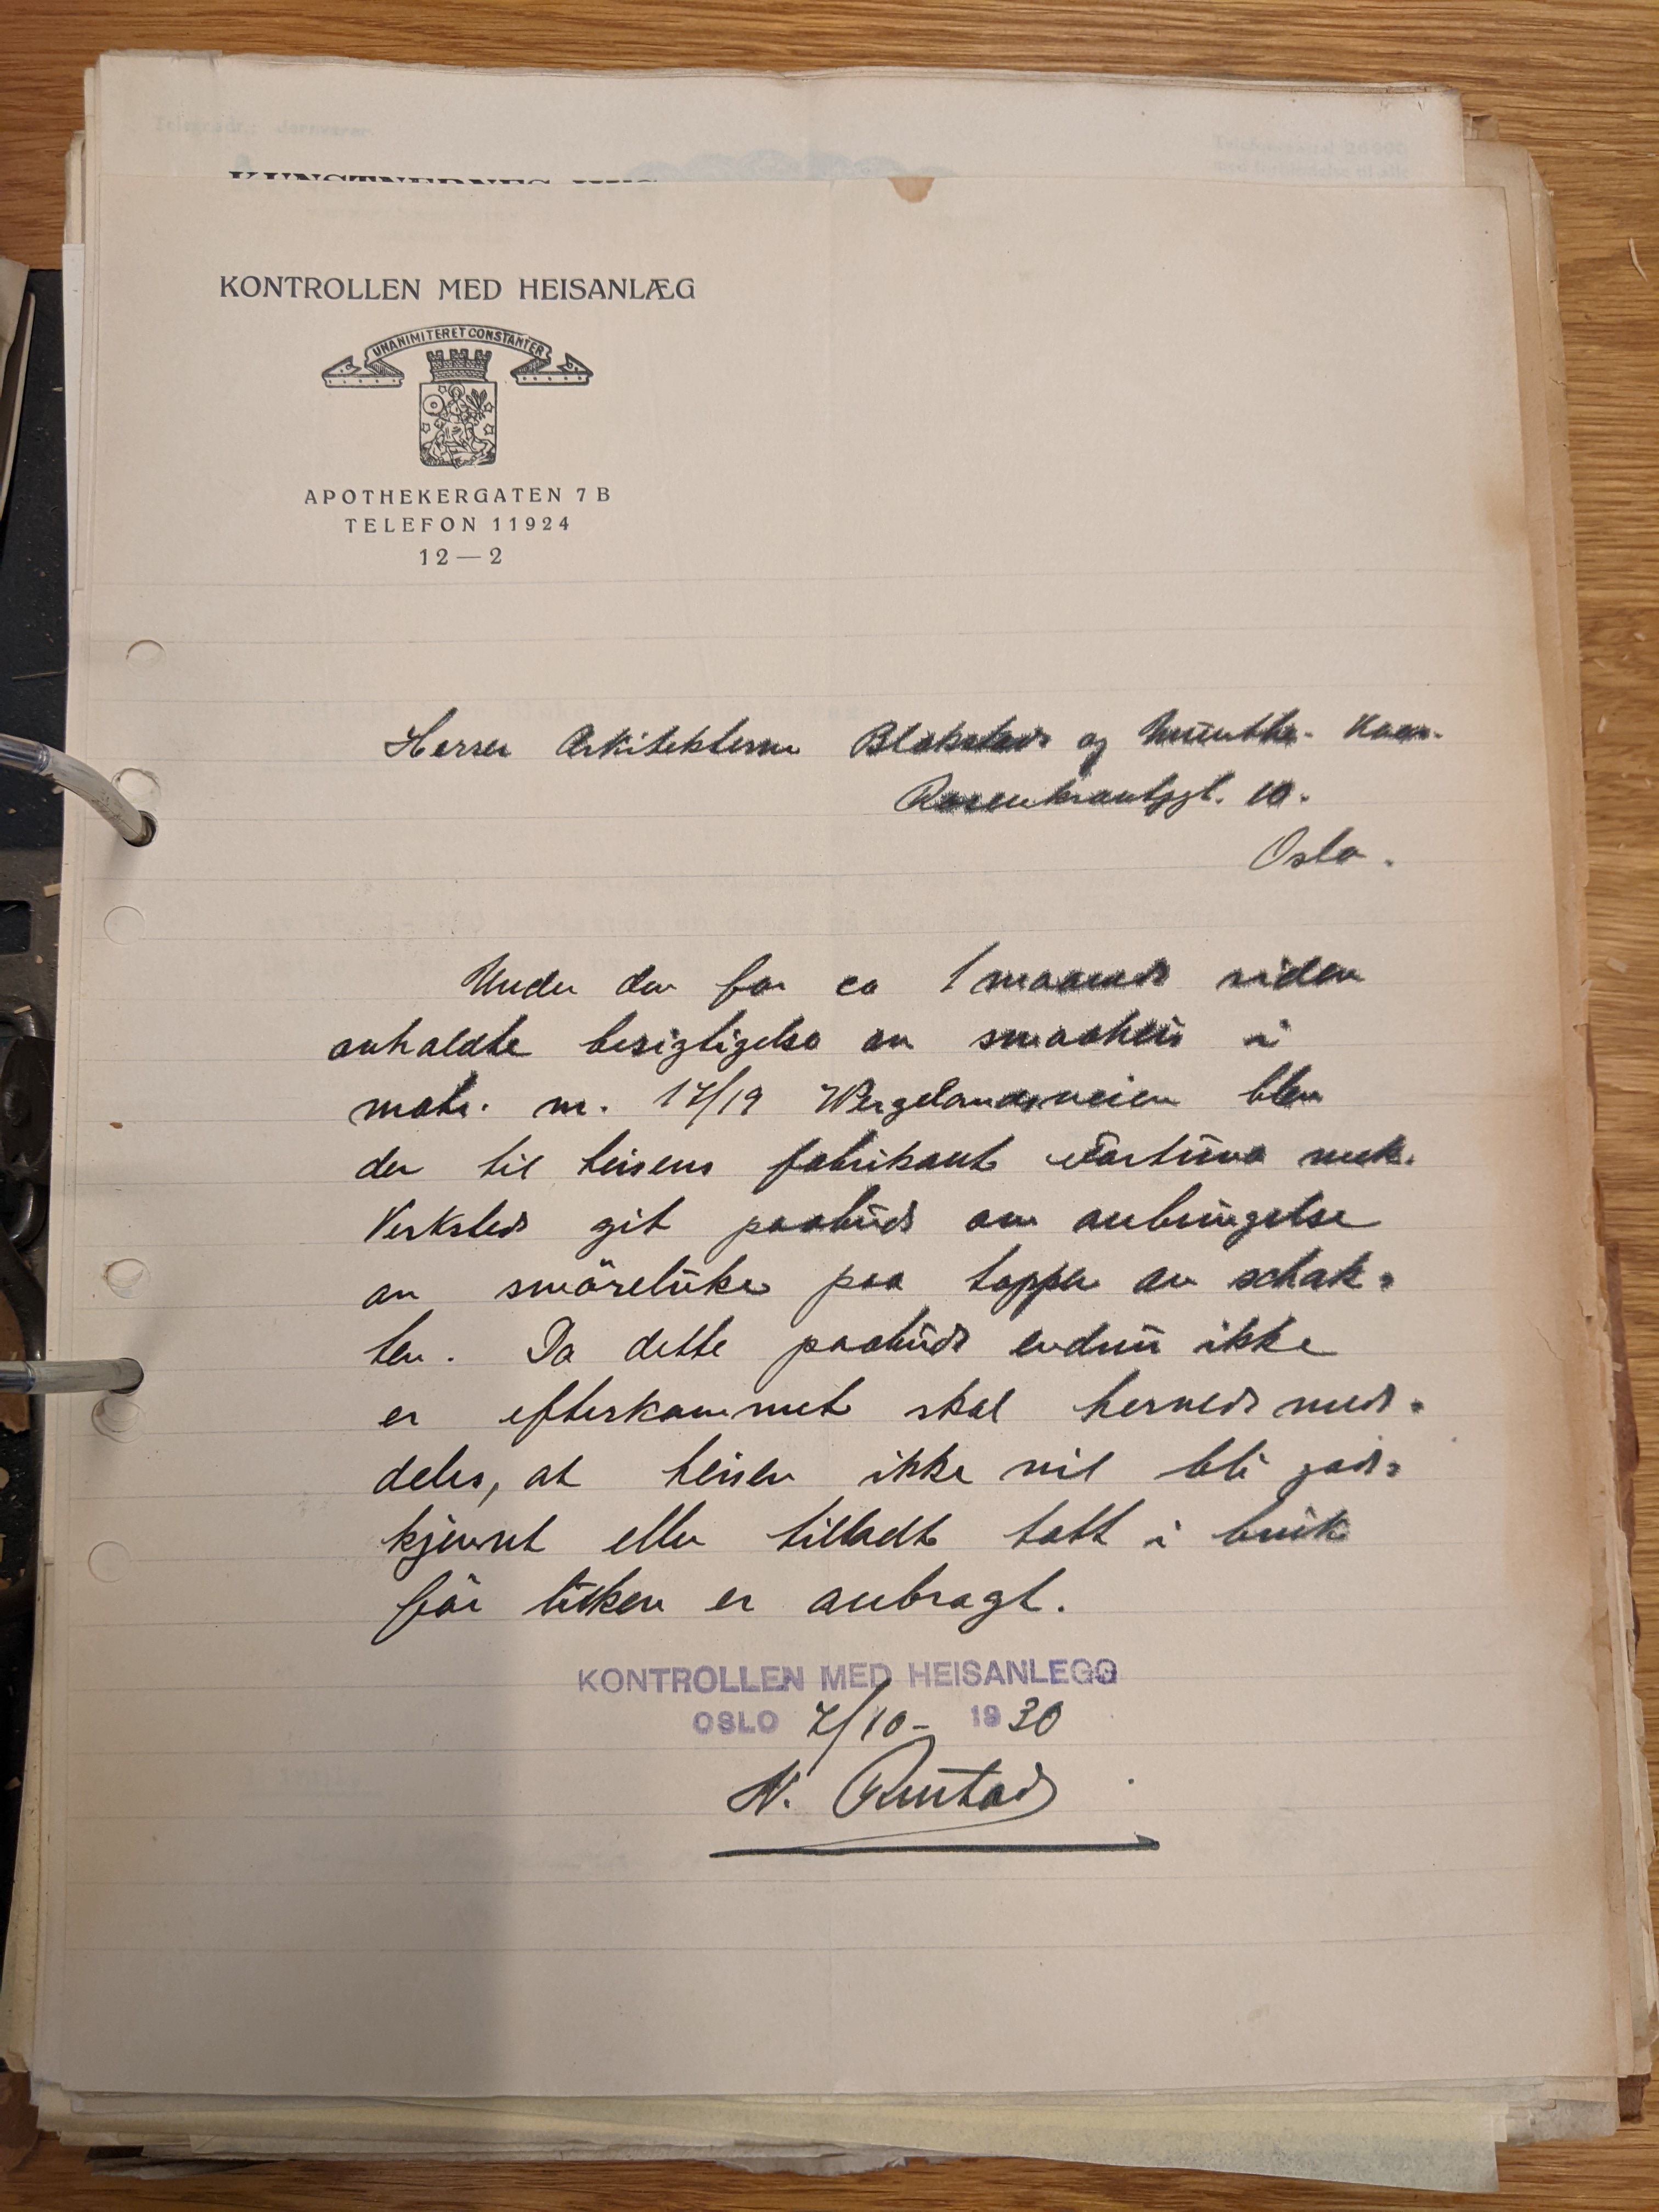 Telegradr.: Jernvarer
KUNSTNERNES HUS
KONTROLLEN MED HEISANLÆG
UNANIMITER ET CONSTANTER
APOTHEKERGATEN 7 B
TELEFON 11924
12 — 2
Herrer Arkitekterne Blakstad og Munthe-Kaas.
Rosenkrantzgt. 10.
Oslo.
Under den for ca 1 maaned siden
anholdte besigtigelse av smaaheis i
matr. nr. 17/19 Wergelandsveien blev
der til heisens fabrikant Fortuna mek.
Verksted git paabud om anbringelse
av smöreluke paa toppen av schak-
ten. Da dette paabud endnu ikke
er efterkommet skal herved med-
deles, at heisen ikke vil bli god-
kjennt eller tilladt tatt i bruk
för luken er anbragt.
KONTROLLEN MED HEISANLEGG
OSLO 7/10- 1930
N. Rustad